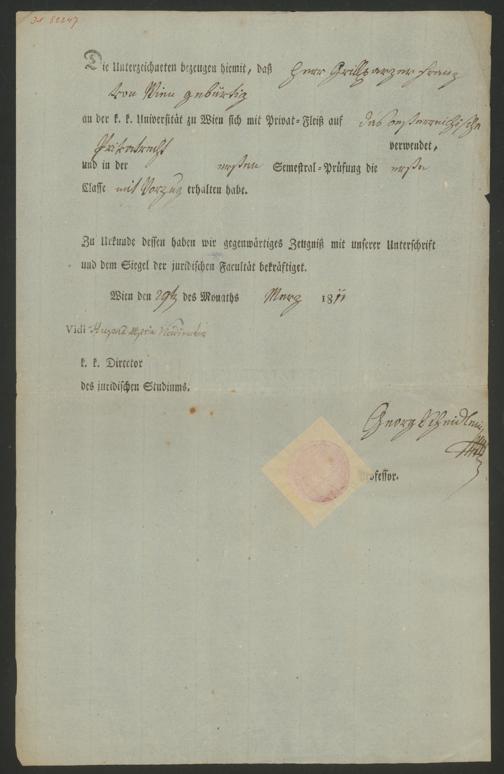 Die Unterzeichneten bezeugen hiemit, daß Herr Grillparzer Franz
von Wien gebürtig
an der k. k. Universität zu Wien sich mit Privat-Fleiß auf das oesterreichische
Privatrecht verwendet,
und in der ersten Semestral-Prüfung die erste
Classe mit Vorzug erhalten habe.
Zu Urkunde dessen haben wir gegenwärtiges Zeugniß mit unserer Unterschrift
und dem Siegel der juridischen Facultät bekräftiget.
Wien den 29 des Monaths Merz 1811
Vidi
k. k. Director
des juridischen Studiums.
Georg Scheidlein
Professor.